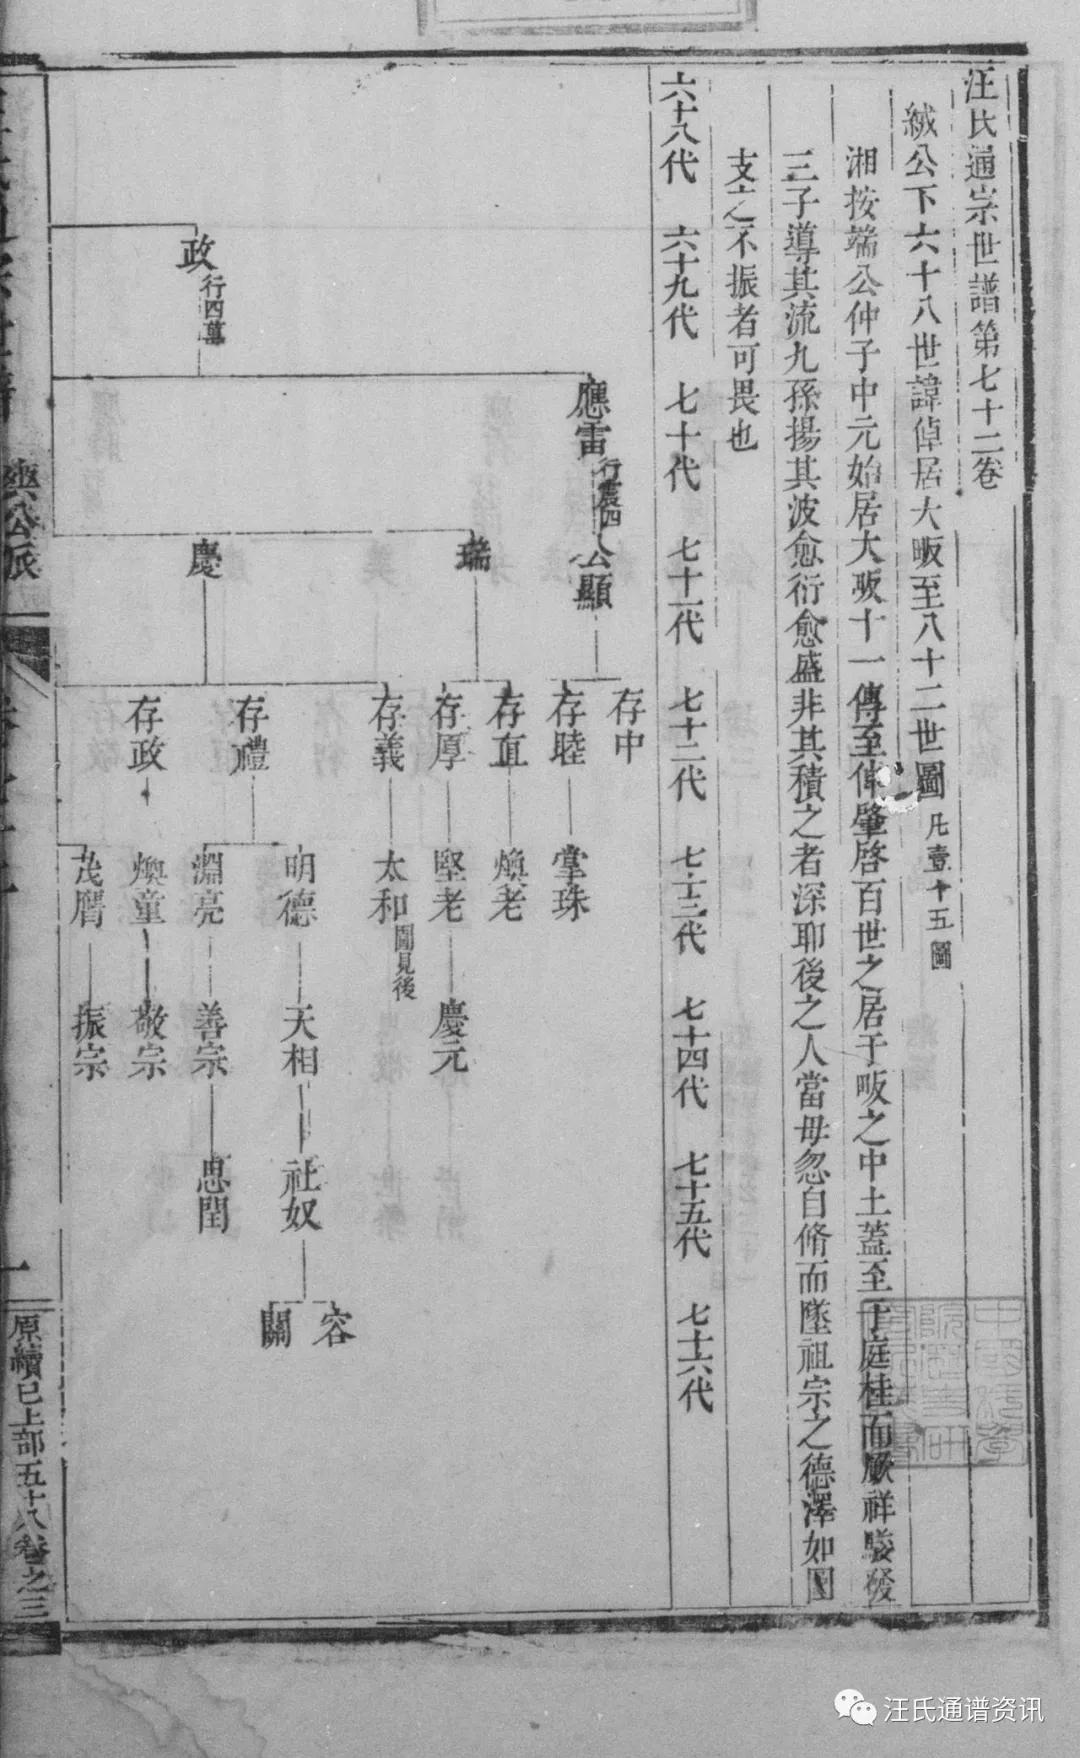 汪氏通宗世譜第七十二卷
緎公下六十八世諱倬居大畈至八十二世圖 凡壹十五圖
湘按端公仲子中元始居大畈十一傳至倬肇啓百世之居于畈之中土蓋至于庭桂而厥祥駿發
三子導其流九孫揚其波愈衍愈盛非其積之者深耶後之人當毋忽自脩而墜祖宗之德澤如圖
支之不振者可畏也
六十八代 六十九代 七十代 七十一代 七十二代 七十三代 七十四代 七十五代 七十六代
存中
應雷 行震四 公顯
存睦 掌珠
存直 煥老
瑞
存厚 堅老 慶元
存義 太和 圖見後
明德 天相 社奴
容
關
存禮
慶
政 行四萬
淵亮 善宗 思閏
存政
煥童 敬宗
茂膺 振宗
公派
一
原續已上部五十八卷之三
汪氏通谱资讯